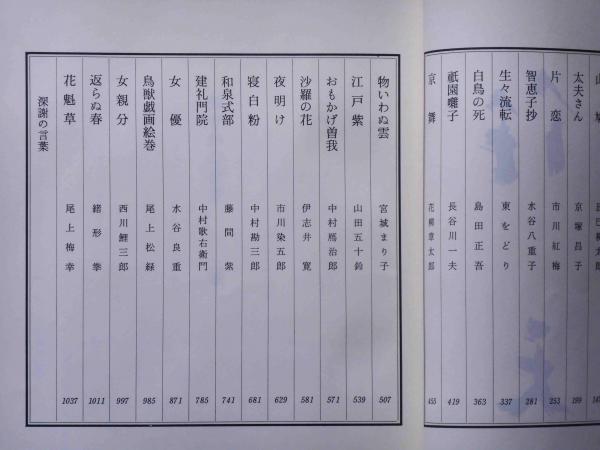 太夫さん 京塚昌子 199
片恋 市川紅梅 253
智恵子抄 水谷八重子 281
生々流転 東をどり 337
白鳥の死 島田正吾 363
祇園囃子 長谷川一夫 419
京舞 花柳章太郎 455
物いわぬ雲 宮城まり子 507
江戸紫 山田五十鈴 539
おもかげ曽我 中村鴈治郎 571
沙羅の花 伊志井寛 581
夜明け 市川染五郎 629
寝白粉 中村勘三郎 681
和泉式部 藤間紫 741
建礼門院 中村歌右衛門 785
女優 水谷良重 871
鳥獣戯画絵巻 尾上松緑 985
女親分 西川鯉三郎 997
返らぬ春 緒形拳 1011
花魁草 尾上梅幸 1037
深謝の言葉